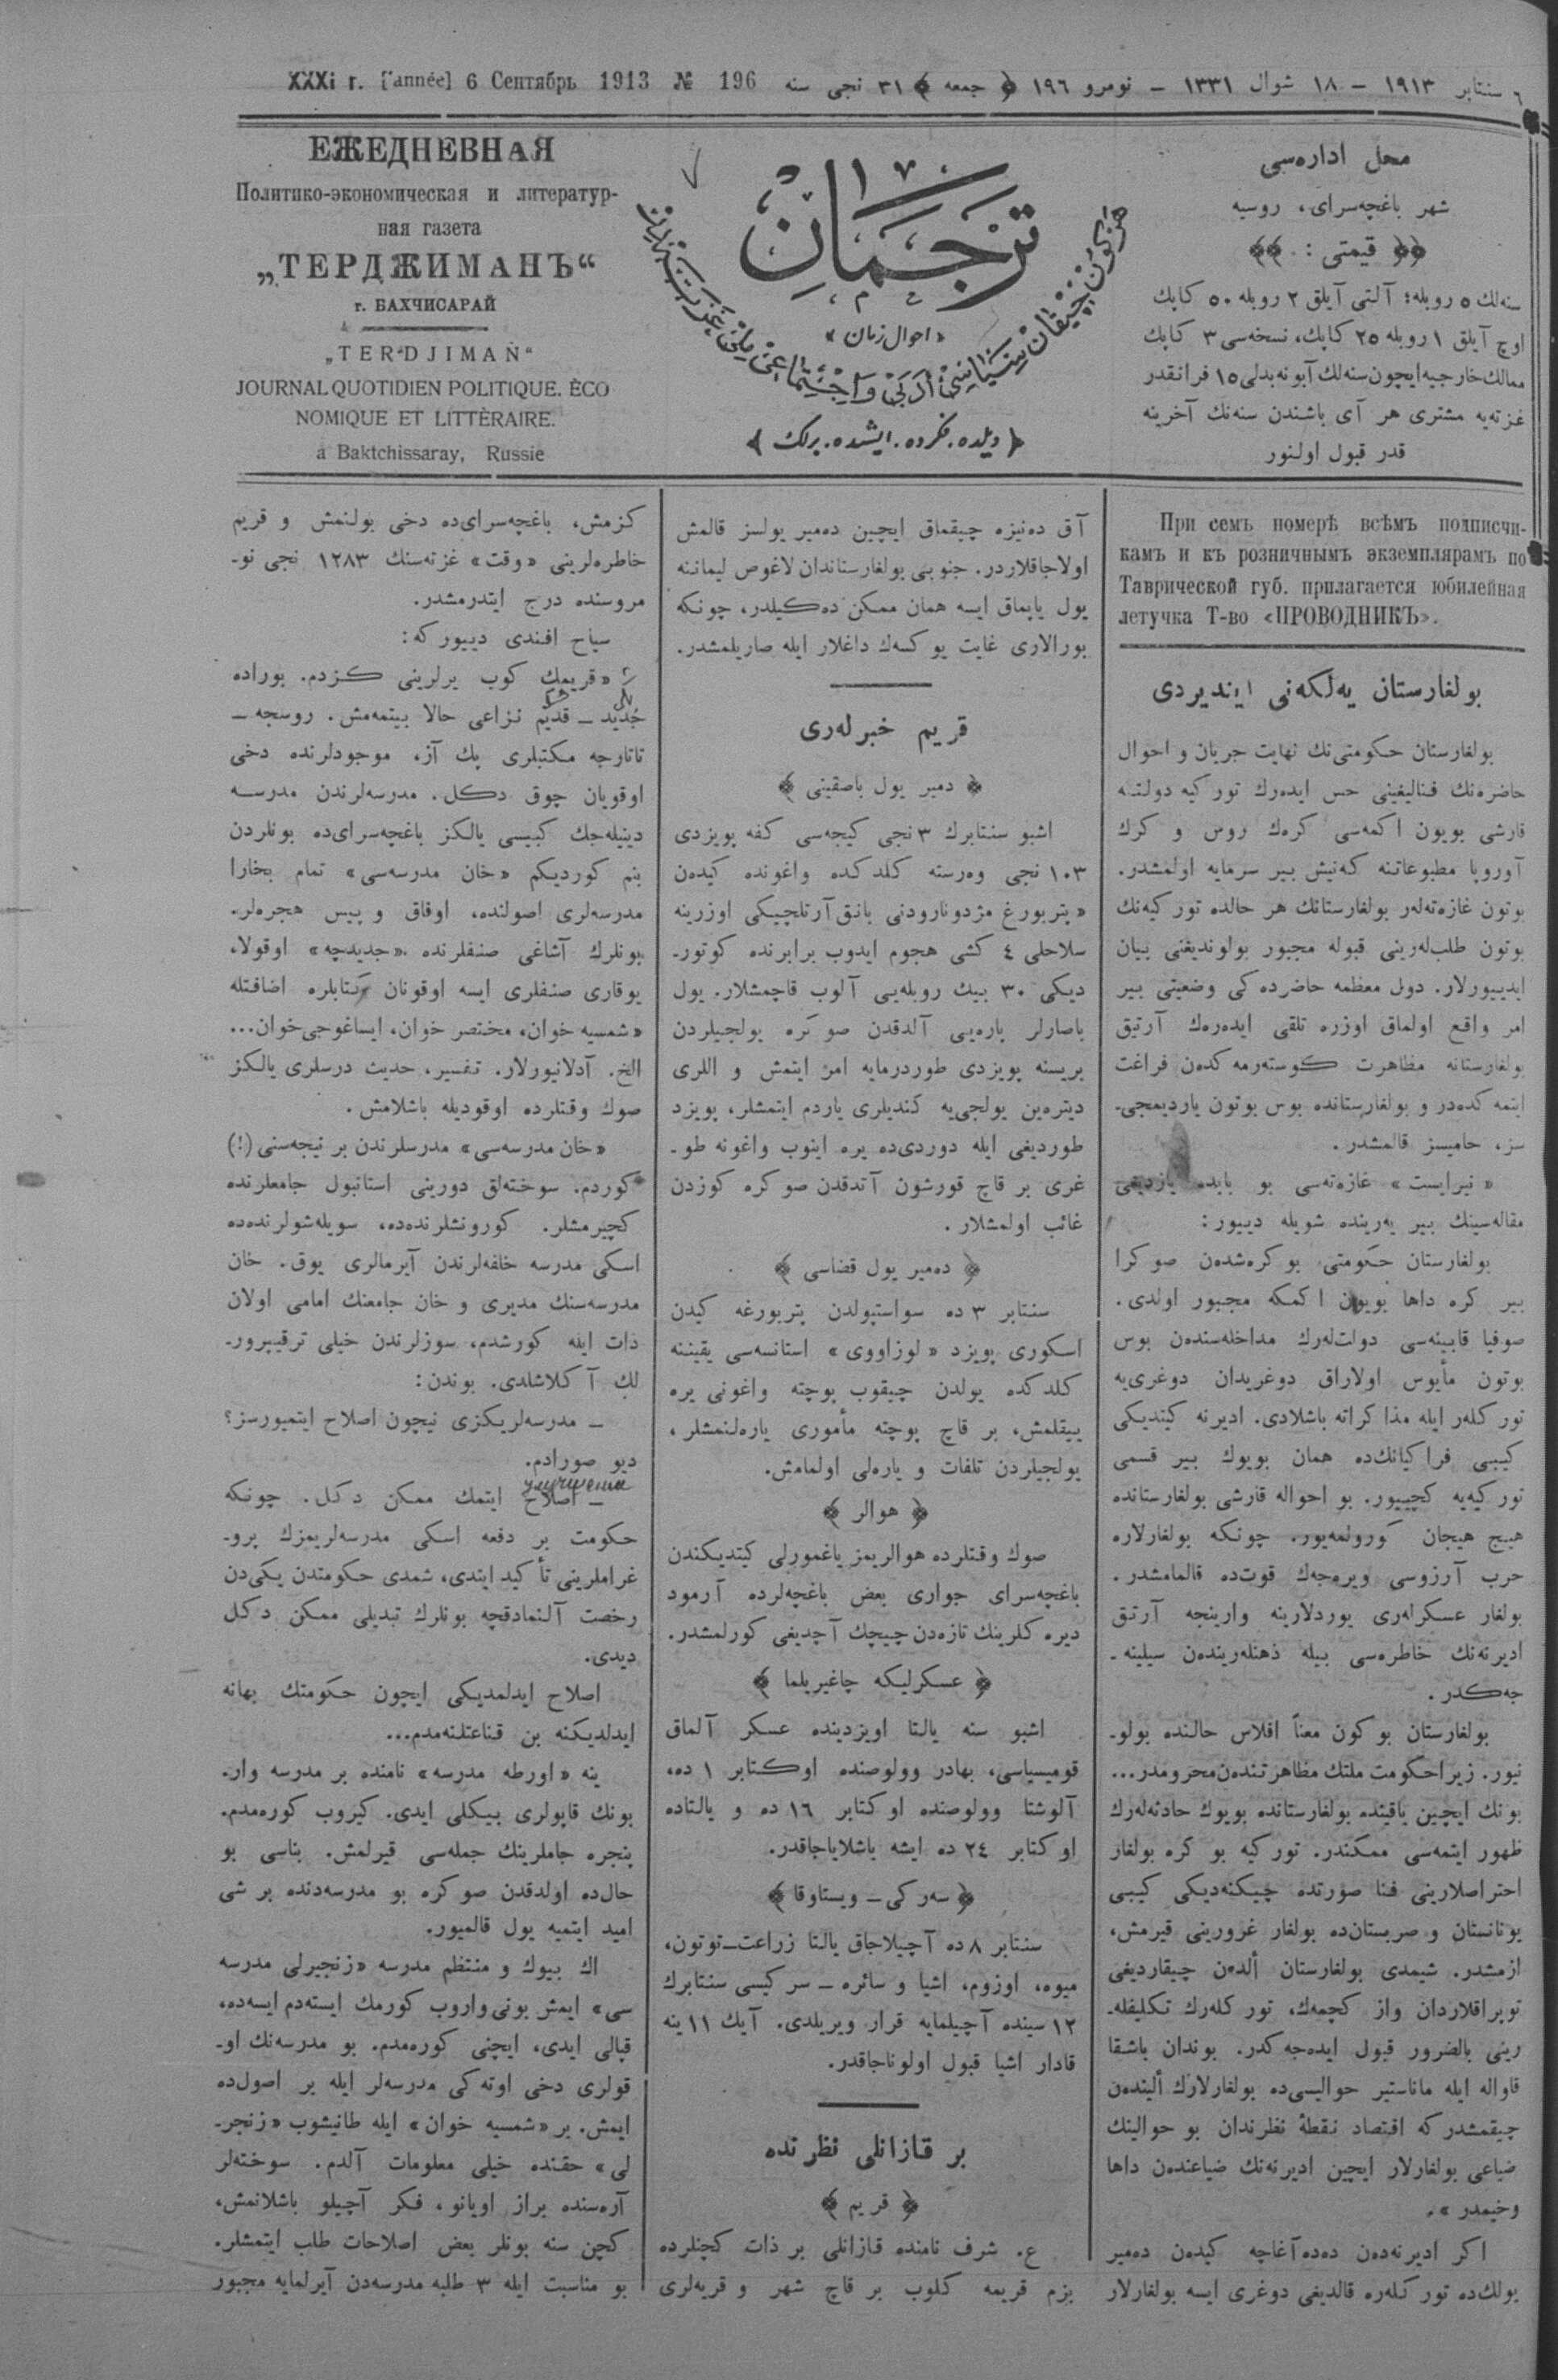 XXXi г. [l'année] 6 Сентябрь 1913 № 196
٦ سنتابر ١٩١٣ – ١٨ شوال ١٣٣١ – نومرو ١٩٦ ﴿ جمعه ﴾ ٣١ نجی سنه
ЕЖЕДНЕВНАЯ
Политико-экономическая и литератур-
ная газета
„ТЕРДЖИМАНЪ“
г. БАХЧИСАРАЙ
„TERDJIMAN“
JOURNAL QUOTIDIEN POLITIQUE. ÈCO
NOMIQUE ET LITTÈRAIRE.
á Baktchissaray, Russie
ترجمان
« احوال زمان »
﴿ دیلده. فكرده. ایشده. برلك ﴾
محل اداره‌سی
شهر باغچه‌سرای، روسیه
قیمتی :
سنه‌لك ٥ روبله؛ آلتی آیلق ٢ روبله ٥٠ كاپك
اوچ آیلق ١ روبله ٢٥ كاپك، نسخه‌سی ٣ كاپك
ممالك خارجیه ایچون سنه‌لك آبونه بدلی ١٥ فرانقدر
غزته‌یه مشتری هر آی باشندن سنه‌نك آخرینه
قدر قبول اولنور
При семъ номерѣ всѣмъ подписчи-
камъ и къ розничнымъ экземплярамъ по
Таврической губ. прилагается юбилейная
летучка Т-во «ПРОВОДНИКЪ».
بولغارستان یه‌لكه‌نی ایندیردی
بولغارستان حكومتی‌نك نهایت جریان و احوال
حاضره‌نك فنالیغینی حس ایده‌رك توركیه دولتنه
قارشی بویون اكمه‌سی كرك روس و كرك
آوروپا مطبوعاتنه كه‌نیش بیر سرمایه اولمشدر.
بوتون غازه‌ته‌لر بولغارستانك هر حالده توركیه‌نك
بوتون طلب‌له‌رینی قبوله مجبور بولوندیغنی بیان
ایدییورلار. دول معظمه حاضرده‌كی وضعیتی بیر
امر واقع اولماق اوزره تلقی ایده‌رك آرتیق
بولغارستانه مظاهرت كوسته‌رمه‌كدن فراغت
ایتمه‌كده‌در و بولغارستانده بوس بوتون یاردیمجی‌-
سز، حامیسز قالمشدر.
« نیرایست » غازه‌ته‌سی بو بابده یازدیغی
مقاله‌سینك بیر یه‌رینده شویله دییور :
بولغارستان حكومتی، بو كره‌شده‌ن صوكرا
بیر كره داها بویون اكمكه مجبور اولدی.
صوفیا قابینه‌سی دولت‌له‌رك مداخله‌سنده‌ن بوس
بوتون مأیوس اولاراق دوغریدان دوغری‌یه
توركلر ایله مذاكراته باشلادی. ادیرنه كیتدیكی
كیبی فراكیانك‌ده همان بویوك بیر قسمی
توركیه‌یه كچییور. بو احواله قارشی بولغارستانده
هیج هیجان كورولمه‌یور. چونكه بولغارلاره
حرب آرزوسی ویره‌جك قوت‌ده قالمامشدر.
بولغار عسكرله‌ری یوردلارینه وارینجه آرتق
ادیرنه‌نك خاطره‌سی بیله ذهنله‌رینده‌ن سیلینه‌-
جه‌كدر.
بولغارستان بوكون معناً افلاس حالنده بولو-
نیور. زیرا حكومت ملتك مظاهرتنده‌ن محرومدر...
بونك ایچین یاقینده بولغارستانده بویوك حادثه‌له‌رك
ظهور ایتمه‌سی ممكندر. توركیه بو كره بولغار
احتراصلارینی فنا صورتده چیكنه‌دیكی كیبی
یونانستان و صربستان‌ده بولغار غرورینی قیرمش،
ازمشدر. شیمدی بولغارستان ألده‌ن چیقاردیغی
توپراقلاردان واز كچمه‌ك، توركله‌رك تكلیفله‌-
رینی بالضرور قبول ایده‌جه‌كدر. بوندان باشقا
قاواله ایله ماناستیر حوالیسی‌ده بولغارلارك ألینده‌ن
چیقمشدر كه اقتصاد نقطۀ نظرندان بو حوالینك
ضیاعی بولغارلار ایچین ادیرنه‌نك ضیاعنده‌ن داها
وخیمدر ».
اكر ادیرنه‌ده‌ن ده‌ده آغاچه كیده‌ن ده‌میر
یولك‌ده توركله‌ره قالدیغی دوغری ایسه بولغارلار
آق ده‌نیزه چیقماق ایچین ده‌میر یولسز قالمش
اولاجاقلاردر. جنوبی بولغارستاندان لاغوص لیماننه
یول یاپماق ایسه همان ممكن ده‌كیلدر، چونكه
بورالاری غایت یوكسه‌ك داغلار ایله صاریلمشدر.
قریم خبرله‌ری
﴿ دمیر یول باصقینی ﴾
اشبو سنتابرك ٣ نجی كیجه‌سی كفه پویزدی
١٠٣ نجی وه‌رسته كلدكده واغونده كیده‌ن
« پتربورغ مژدونارودنی بانق آرتلچیكی اوزرینه
سلاحلی ٤ كشی هجوم ایدوب برابرنده كوتور-
دیكی ٣٠ بیك روبله‌یی آلوب قاچمشلار. یول
باصارلر پاره‌یی آلدقدن صوكره یولجیلردن
بریسنه پویزدی طوردرمایه امر ایتمش و اللری
دیتره‌ین یولجی‌یه كندیلری یاردم ایتمشلر، پویزد
طوردیغی ایله دوردی‌ده یره اینوب واغونه طو-
غری بر قاچ قورشون آتدقدن صوكره كوزدن
غائب اولمشلار.
﴿ ده‌میر یول قضاسی ﴾
سنتابر ٣ ده سواستپولدن پتربورغه كیدن
اسكوری پویزد « لوزاووی » استانسه‌سی یقیننه
كلدكده یولدن چیقوب پوچته واغونی یره
ییقلمش، بر قاچ پوچته مأموری یاره‌لنمشلر،
یولجیلردن تلفات و یاره‌لی اولمامش.
﴿ هوالر ﴾
صوك وقتلرده هوالریمز یاغمورلی كیتدیكندن
باغچه‌سرای جواری بعض باغچه‌لرده آرمود
دیره‌كلرینك تازه‌دن چیچك آچدیغی كورلمشدر.
﴿ عسكرلیكه چاغیریلما ﴾
اشبو سنه یالتا اویزدینده عسكر آلماق
قومیسیاسی، بهادر وولوصنده اوكتابر ١ ده،
آلوشتا وولوصنده اوكتابر ١٦ ده و یالتاده
اوكتابر ٢٤ ده ایشه باشلایاجاقدر.
﴿ سه‌ركی – ویستاوقا ﴾
سنتابر ٨ ده آچیلاجاق یالتا زراعت–توتون،
میوه، اوزوم، اشیا و سائره – سركیسی سنتابرك
١٢ سینده آچیلمایه قرار ویریلدی. آیك ١١ ینه
قادار اشیا قبول اولوناجاقدر.
بر قازانلی نظرنده
﴿ قریم ﴾
ع. شرف نامنده قازانلی بر ذات كچنلرده
بزم قریمه كلوب بر قاچ شهر و قریه‌لری
كزمش، باغچه‌سرای‌ده دخی بولنمش و قریم
خاطره‌لرینی « وقت » غزته‌سنك ١٢٨٣ نجی نو-
مروسنده درج ایتدرمشدر.
سیاح افندی دییوركه:
« قریمك كوب یرلرینی كزدم. بوراده
جدید – قدیم نزاعی حالا بیتمه‌مش. روسجه –
تاتارجه مكتبلری پك آز، موجودلرنده دخی
اوقویان چوق دكل. مدرسه‌لرندن مدرسه
دینیله‌جك كبیسی یالكز باغچه‌سرای‌ده بونلردن
بنم كوردیكم « خان مدرسه‌سی » تمام بخارا
مدرسه‌لری اصولنده، اوفاق و پیس هجره‌لر.
بونلرك آشاغی صنفلرنده « جدیدچه » اوقولا،
یوقاری صنفلری ایسه اوقونان كتابلره اضافتله
« شمسیه خوان، مختصر خوان، ایساغوجی خوان...
الخ. آدلانیورلار. تفسیر، حدیث درسلری یالكز
صوك وقتلرده اوقودیله باشلامش.
« خان مدرسه‌سی » مدرسلرندن بر نیجه‌سنی (!)
كوردم. سوخته‌لق دورینی استانبول جامعلرنده
كچیرمشلر. كورونشلرنده‌ده، سویله‌شولرنده‌ده
اسكی مدرسه خلفه‌لرندن آیرمالری یوق. خان
مدرسه‌سنك مدیری و خان جامعنك امامی اولان
ذات ایله كورشدم، سوزلرندن خیلی ترقیپرور-
لك آكلاشلدی. بوندن:
– مدرسه‌لریكزی نیچون اصلاح ایتمیورسز؟
دیو صورادم.
улучшения
– اصلاح ایتمك ممكن دكل. چونكه
حكومت بر دفعه اسكی مدرسه‌لریمزك پرو-
غراملرینی تأكید ایتدی، شمدی حكومتدن یكی‌دن
رخصت آلنمادقچه بونلرك تبدیلی ممكن دكل
دیدی.
اصلاح ایدلمدیكی ایچون حكومتك بهانه
ایدلدیكنه بن قناعتلنه‌مدم...
ینه « اورطه مدرسه » نامنده بر مدرسه وار.
بونك قاپولری بیكلی ایدی. كیروب كوره‌مدم.
پنجره جاملرینك جمله‌سی قیرلمش. بناسی بو
حال‌ده اولدقدن صوكره بو مدرسه‌دنده بر شی
امید ایتمیه یول قالمیور.
اك بیوك و منتظم مدرسه « زنجیرلی مدرسه
سی » ایمش بونی واروب كورمك ایسته‌دم ایسه‌ده،
قپالی ایدی، ایچنی كوره‌مدم. بو مدرسه‌نك او-
قولری دخی اوته‌كی مدرسه‌لر ایله بر اصول‌ده
ایمش. بر « شمسیه خوان » ایله طانیشوب « زنجر-
لی » حقنده خیلی معلومات آلدم. سوخته‌لر
آره‌سنده براز اویانو، فكر آچیلو باشلانمش،
كچن سنه بونلر بعض اصلاحات طلب ایتمشلر.
بو مناسبت ایله ٣ طلبه مدرسه‌دن آیرلمایه مجبور